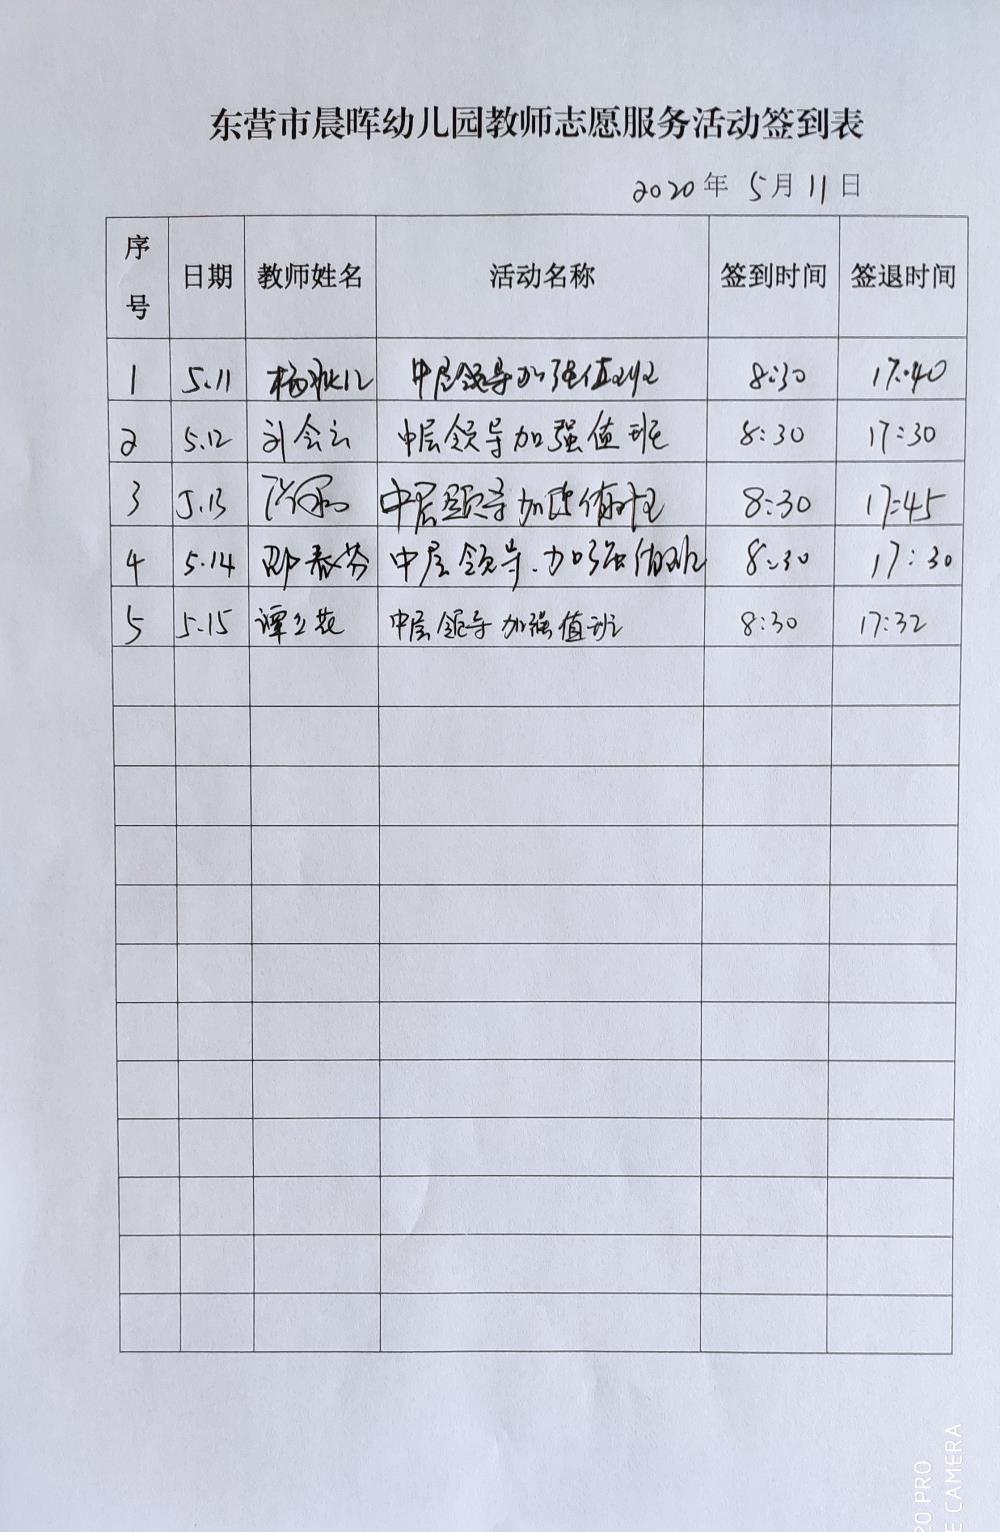 东营市晨晖幼儿园教师志愿服务活动签到表
2020年 5月11日
序号 日期 教师姓名 活动名称 签到时间 签退时间
1 5.11 中层领导加强值班 8:30 17:40
2 5.12 刘会云 中层领导加强值班 8:30 17:30
3 5.13 中层领导加强值班 8:30 17:45
4 5.14 邵春芬 中层领导加强值班 8:30 17:30
5 5.15 谭立花 中层领导加强值班 8:30 17:32
20 PRO
E CAMERA